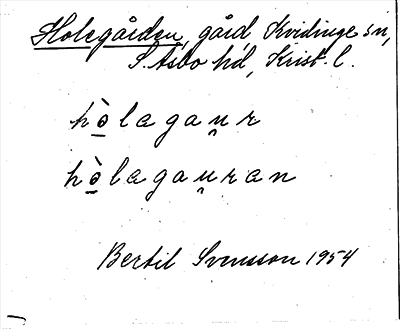 Holegården, gård Kvidinge sn,
S. Åsbo hd, Krist. l.
hò̲lagau̯r
hò̲lagau̯ran
Bertil Svensson 1954